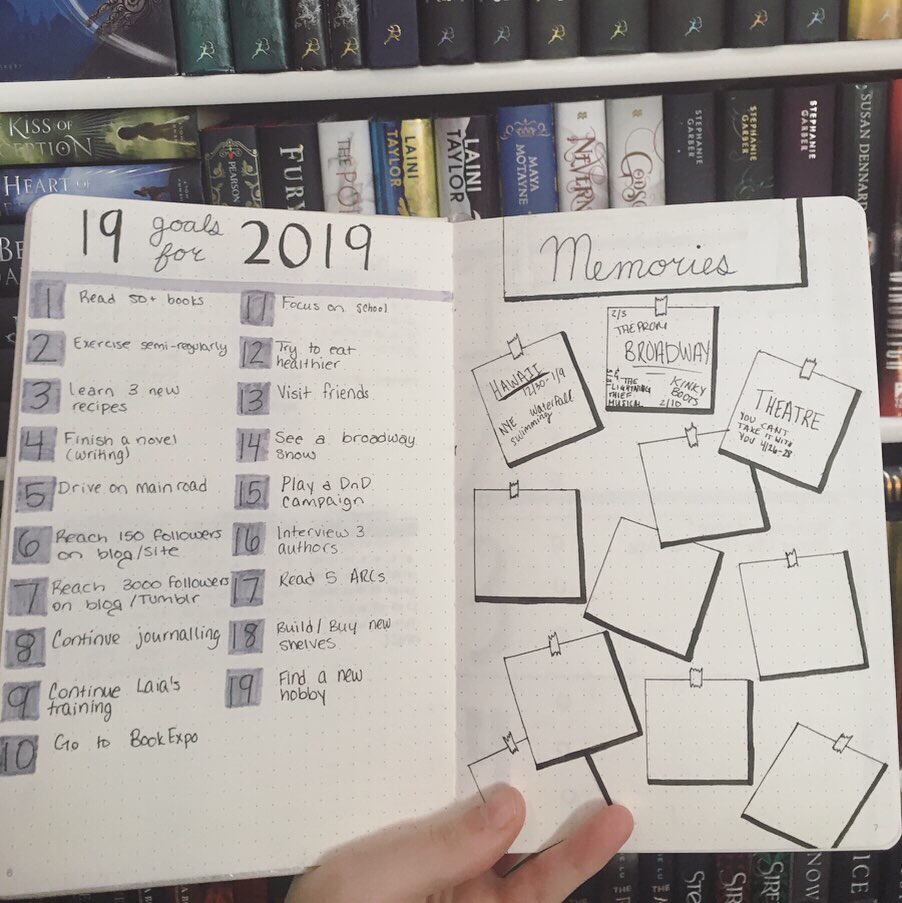 KISS OF
HEART OF
PEARSON
FURY
THE
LAINI
TAYLOR
LAINI
TAYLOR
MAYA
MOTAYNE
STEPHANIE
GARBER
STEPHANIE
GARBER
STEPHANIE
GARBER
SUSAN DENNARD
19 goals for 2019
1 Read 50+ books
2 Exercise semi-regularly
3 learn 3 new
recipes
4 Finish a novel
(writing)
5 Drive on main road
6 Reach 150 followers
on blog/site
7 Reach 3000 followers
on blog/Tumblr
8 Continue journalling
9 Continue Laia's
training
10 Go to BookExpo
11 Focus on school
12 Try to eat
healthier
13 Visit friends
14 See a broadway
show
15 Play a DnD
campaign
16 Interview 3
authors
17 Read 5 ARCs
18 Build/Buy new
shelves
19 Find a new
hobby
6
Memories
HAWAII
12/30-1/9
NYE waterfall
swimming
2/3
THE PROM
BROADWAY
THE
LIGHTNING
THIEF
MUSICAL
KINKY
BOOTS
2/10
THEATRE
YOU CANT
TAKE IT WITH
YOU 4/26-28
7